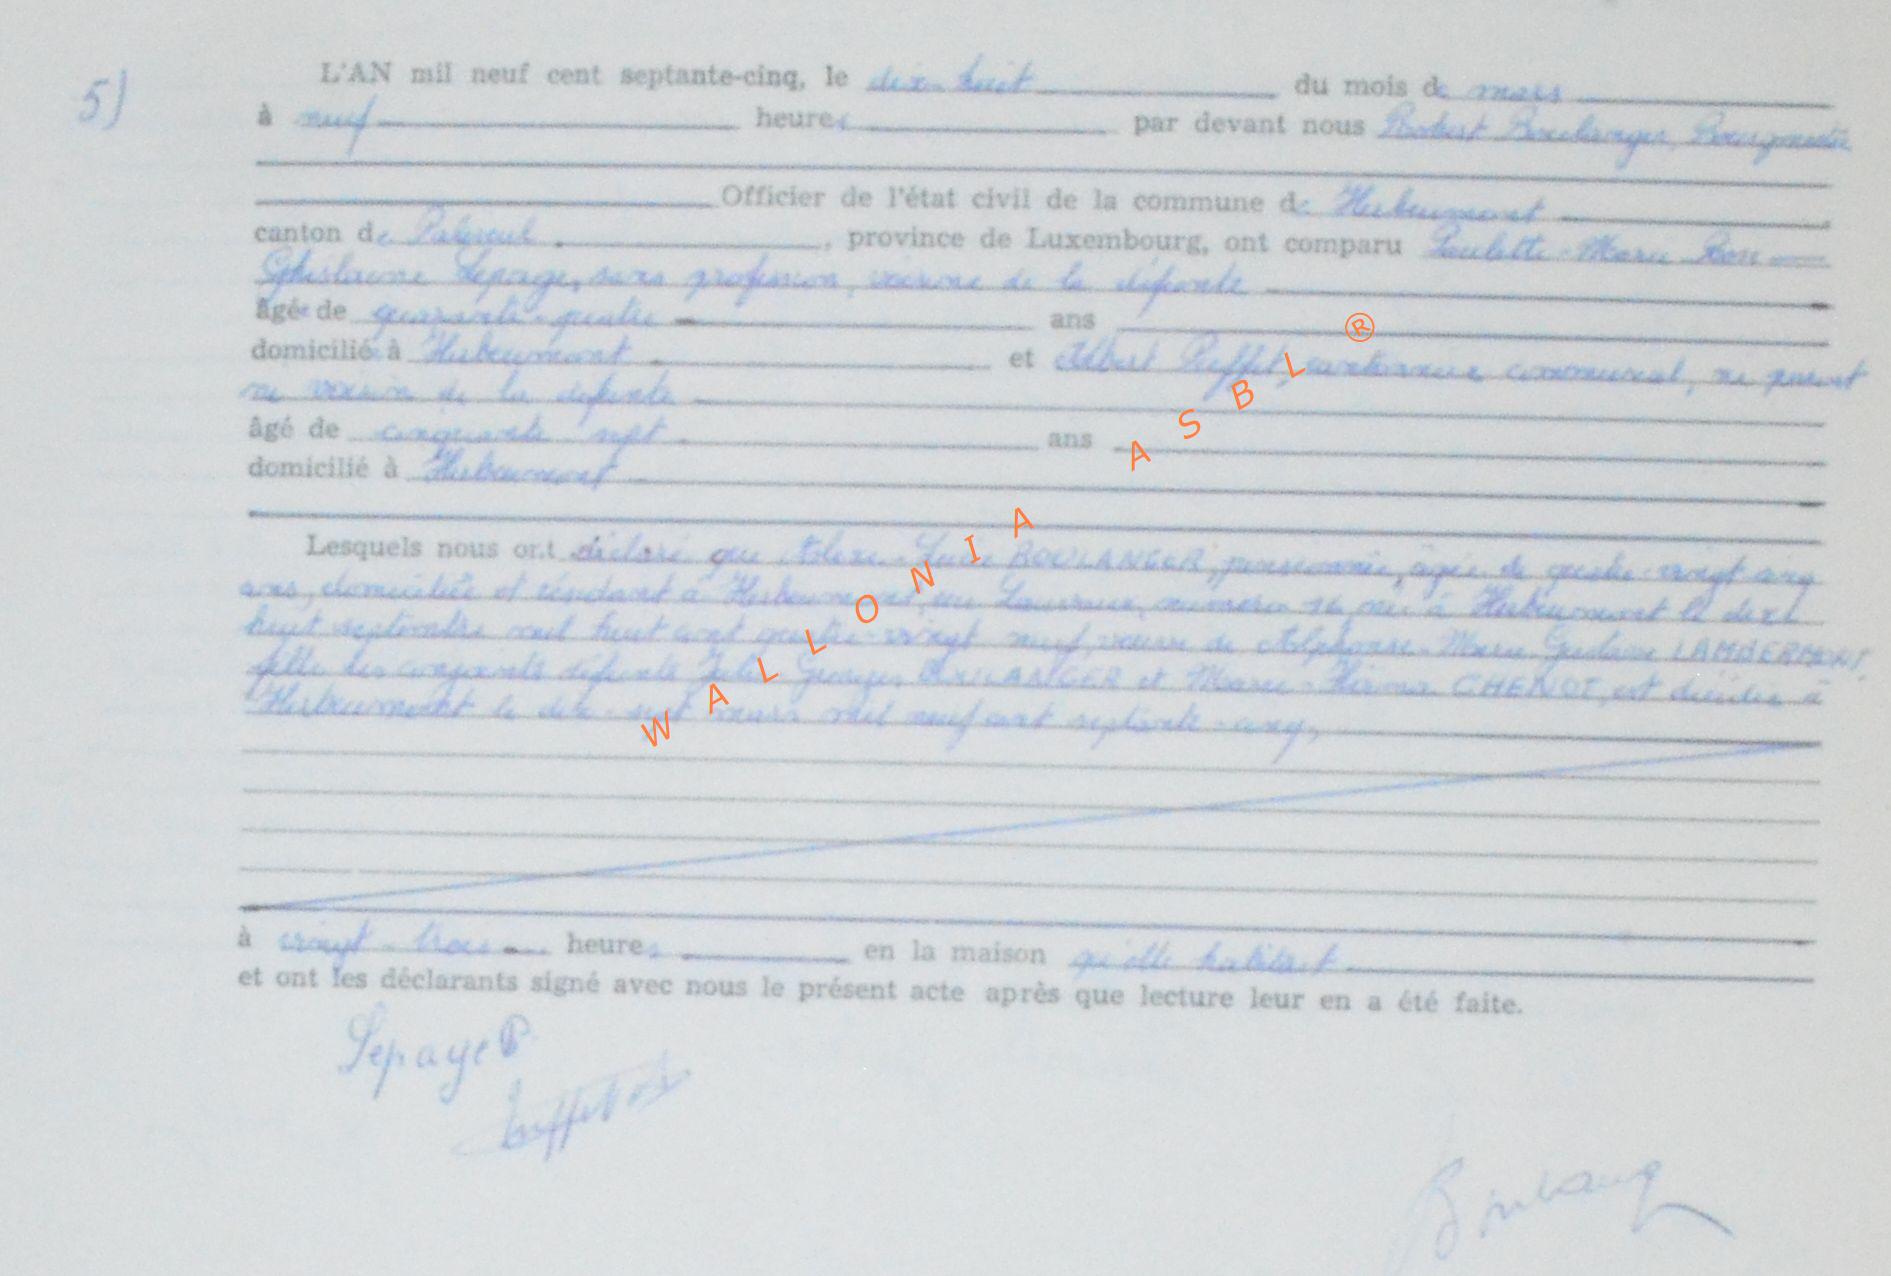 5)
L'AN mil neuf cent septante-cinq, le dix-huit du mois de mars
à neuf heures par devant nous Robert Boulanger, Bourgmestre
Officier de l'état civil de la commune de Herbeumont
canton de Paliseul, province de Luxembourg, ont comparu Paulette-Marie
Ghislaine Lepage, sans profession, voisine de la défunte
âgée de quarante-quatre ans
domiciliée à Herbeumont et Albert Puffet, cantonnier communal, ni parent
ni voisin de la défunte
âgé de cinquante sept ans
domicilié à Herbeumont
Lesquels nous ont déclaré que BOULANGER, pensionnée, âgée de quatre-vingt-cinq
ans, domiciliée et résidant à Herbeumont, numéro née à Herbeumont le dix
huit septembre mil huit cent quatre-vingt neuf, veuve de Alphonse-Marie Gustave LAMBERMONT,
fille des conjoints défunts Jules Georges BOULANGER et Marie- CHENOT, est décédée à
Herbeumont le dix-sept mars mil neuf cent septante-cinq,
à vingt-trois heures en la maison qu'elle habitait
et ont les déclarants signé avec nous le présent acte après que lecture leur en a été faite.
Lepage P
Puffet
Boulang
WALLONIA ASBL ®